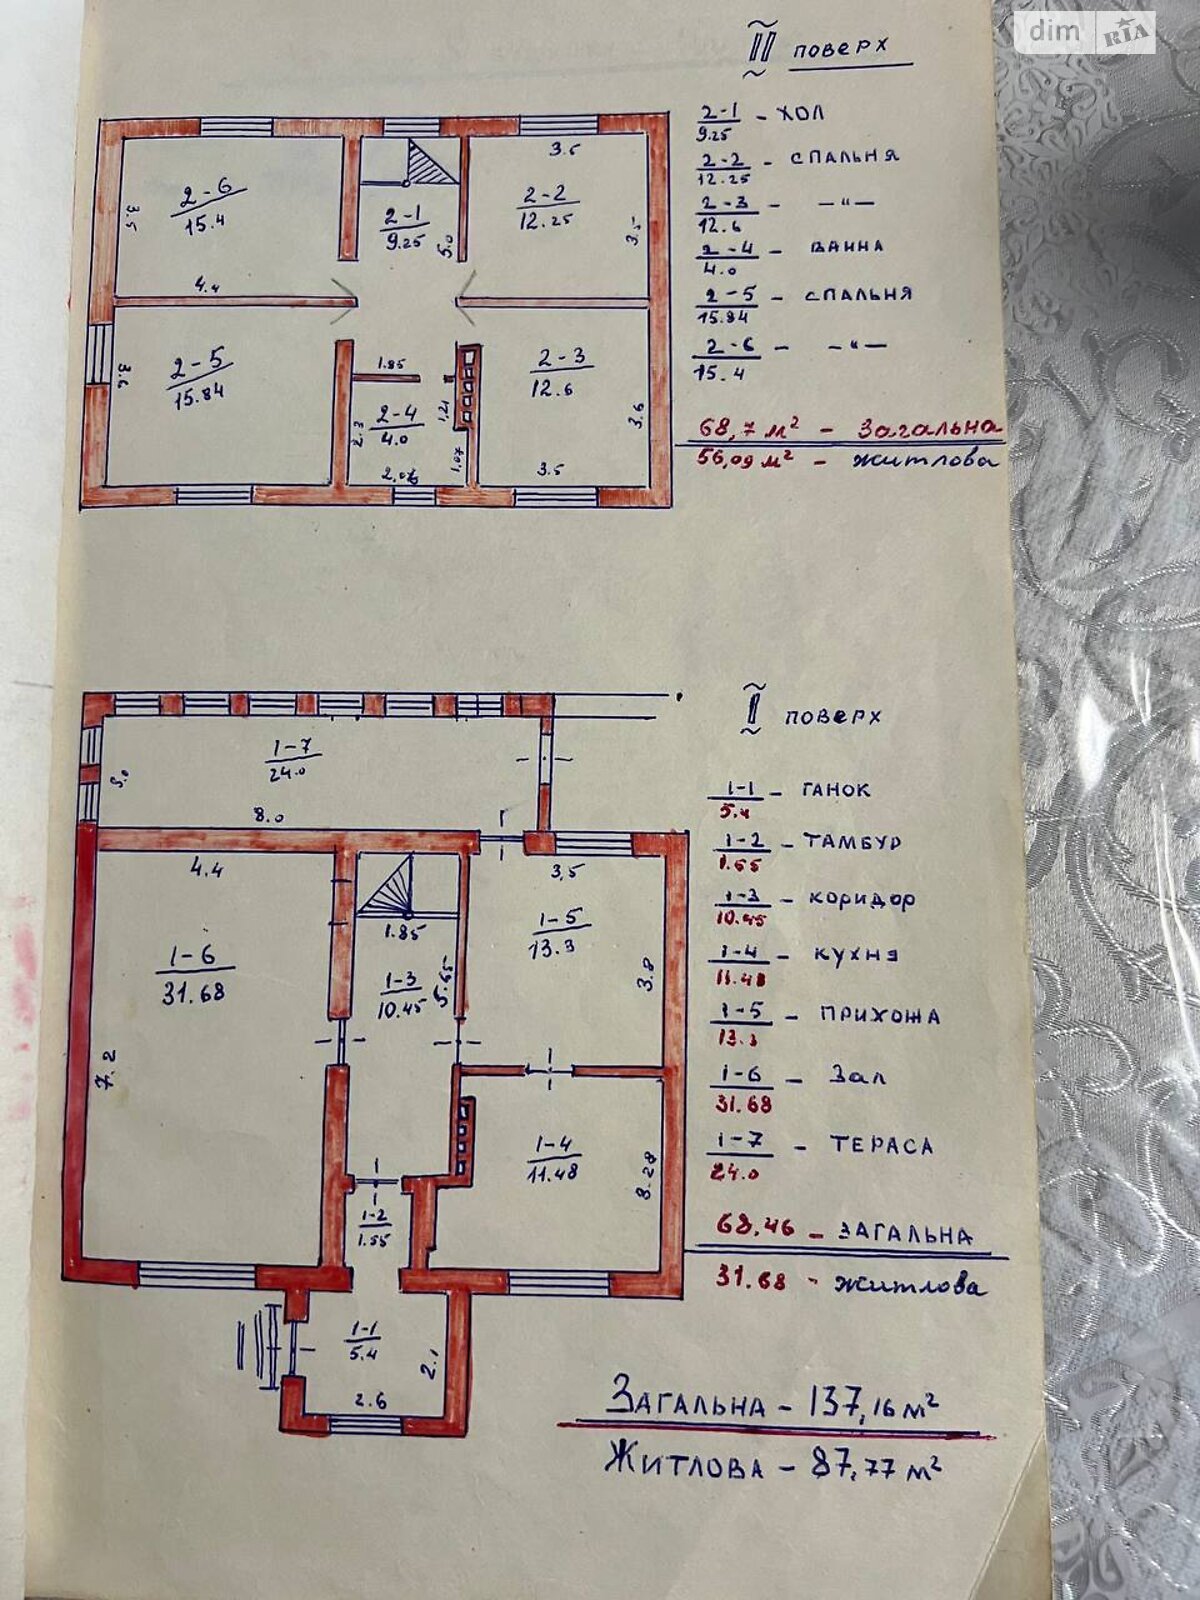 dim RIA
II поверх
2-1 - ХОЛ
9.25
2-2 - СПАЛЬНЯ
12.25
2-3 - -"-
12.6
2-4 - ВАННА
4.0
2-5 - СПАЛЬНЯ
15.84
2-6 - -"-
15.4
68,7 м² - Загальна
56,09 м² - житлова
2-6
15.4
3.5
4.4
2-1
9.25
5.0
3.5
2-2
12.25
3.5
2-5
15.84
3.6
1.85
2-4
4.0
2.3
1.21
1.07
2.07
2-3
12.6
3.6
3.5
I поверх
1-1 - ГАНОК
5.4
1-2 - ТАМБУР
1.55
1-3 - коридор
10.45
1-4 - КУХНЯ
11.48
1-5 - ПРИХОЖА
13.3
1-6 - Зал
31.68
1-7 - ТЕРАСА
24.0
68,46 - ЗАГАЛЬНА
31.68 - житлова
1-7
24.0
8.0
4.4
1-6
31.68
7.2
1.85
1-3
10.45
5.65
3,5
1-5
13.3
3.8
1-4
11.48
3.28
1-2
1.55
1-1
5.4
2.1
2.6
ЗАГАЛЬНА - 137,16 м²
ЖИТЛОВА - 87,77 м²